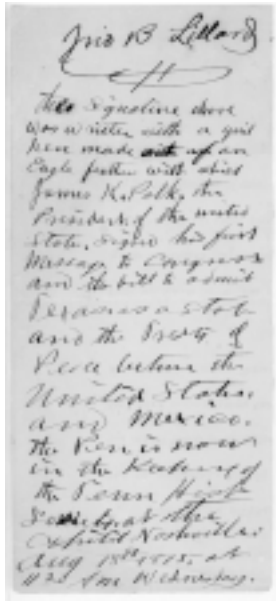 Jno B Lillard
The Signature above
was written with a quil
pen made out of an
Eagle feather with which
James K. Polk, the
President of the united
State, Signed his first
Message to Congress
and the bill to admit
Texas as a State
and the Treaty of
Peace between the
United States
and Mexico.
the Pen is now
in the Keeping of
the Tenn Hist
Society at the
Capitol Nashville
Aug 18th, at
Wednesday.